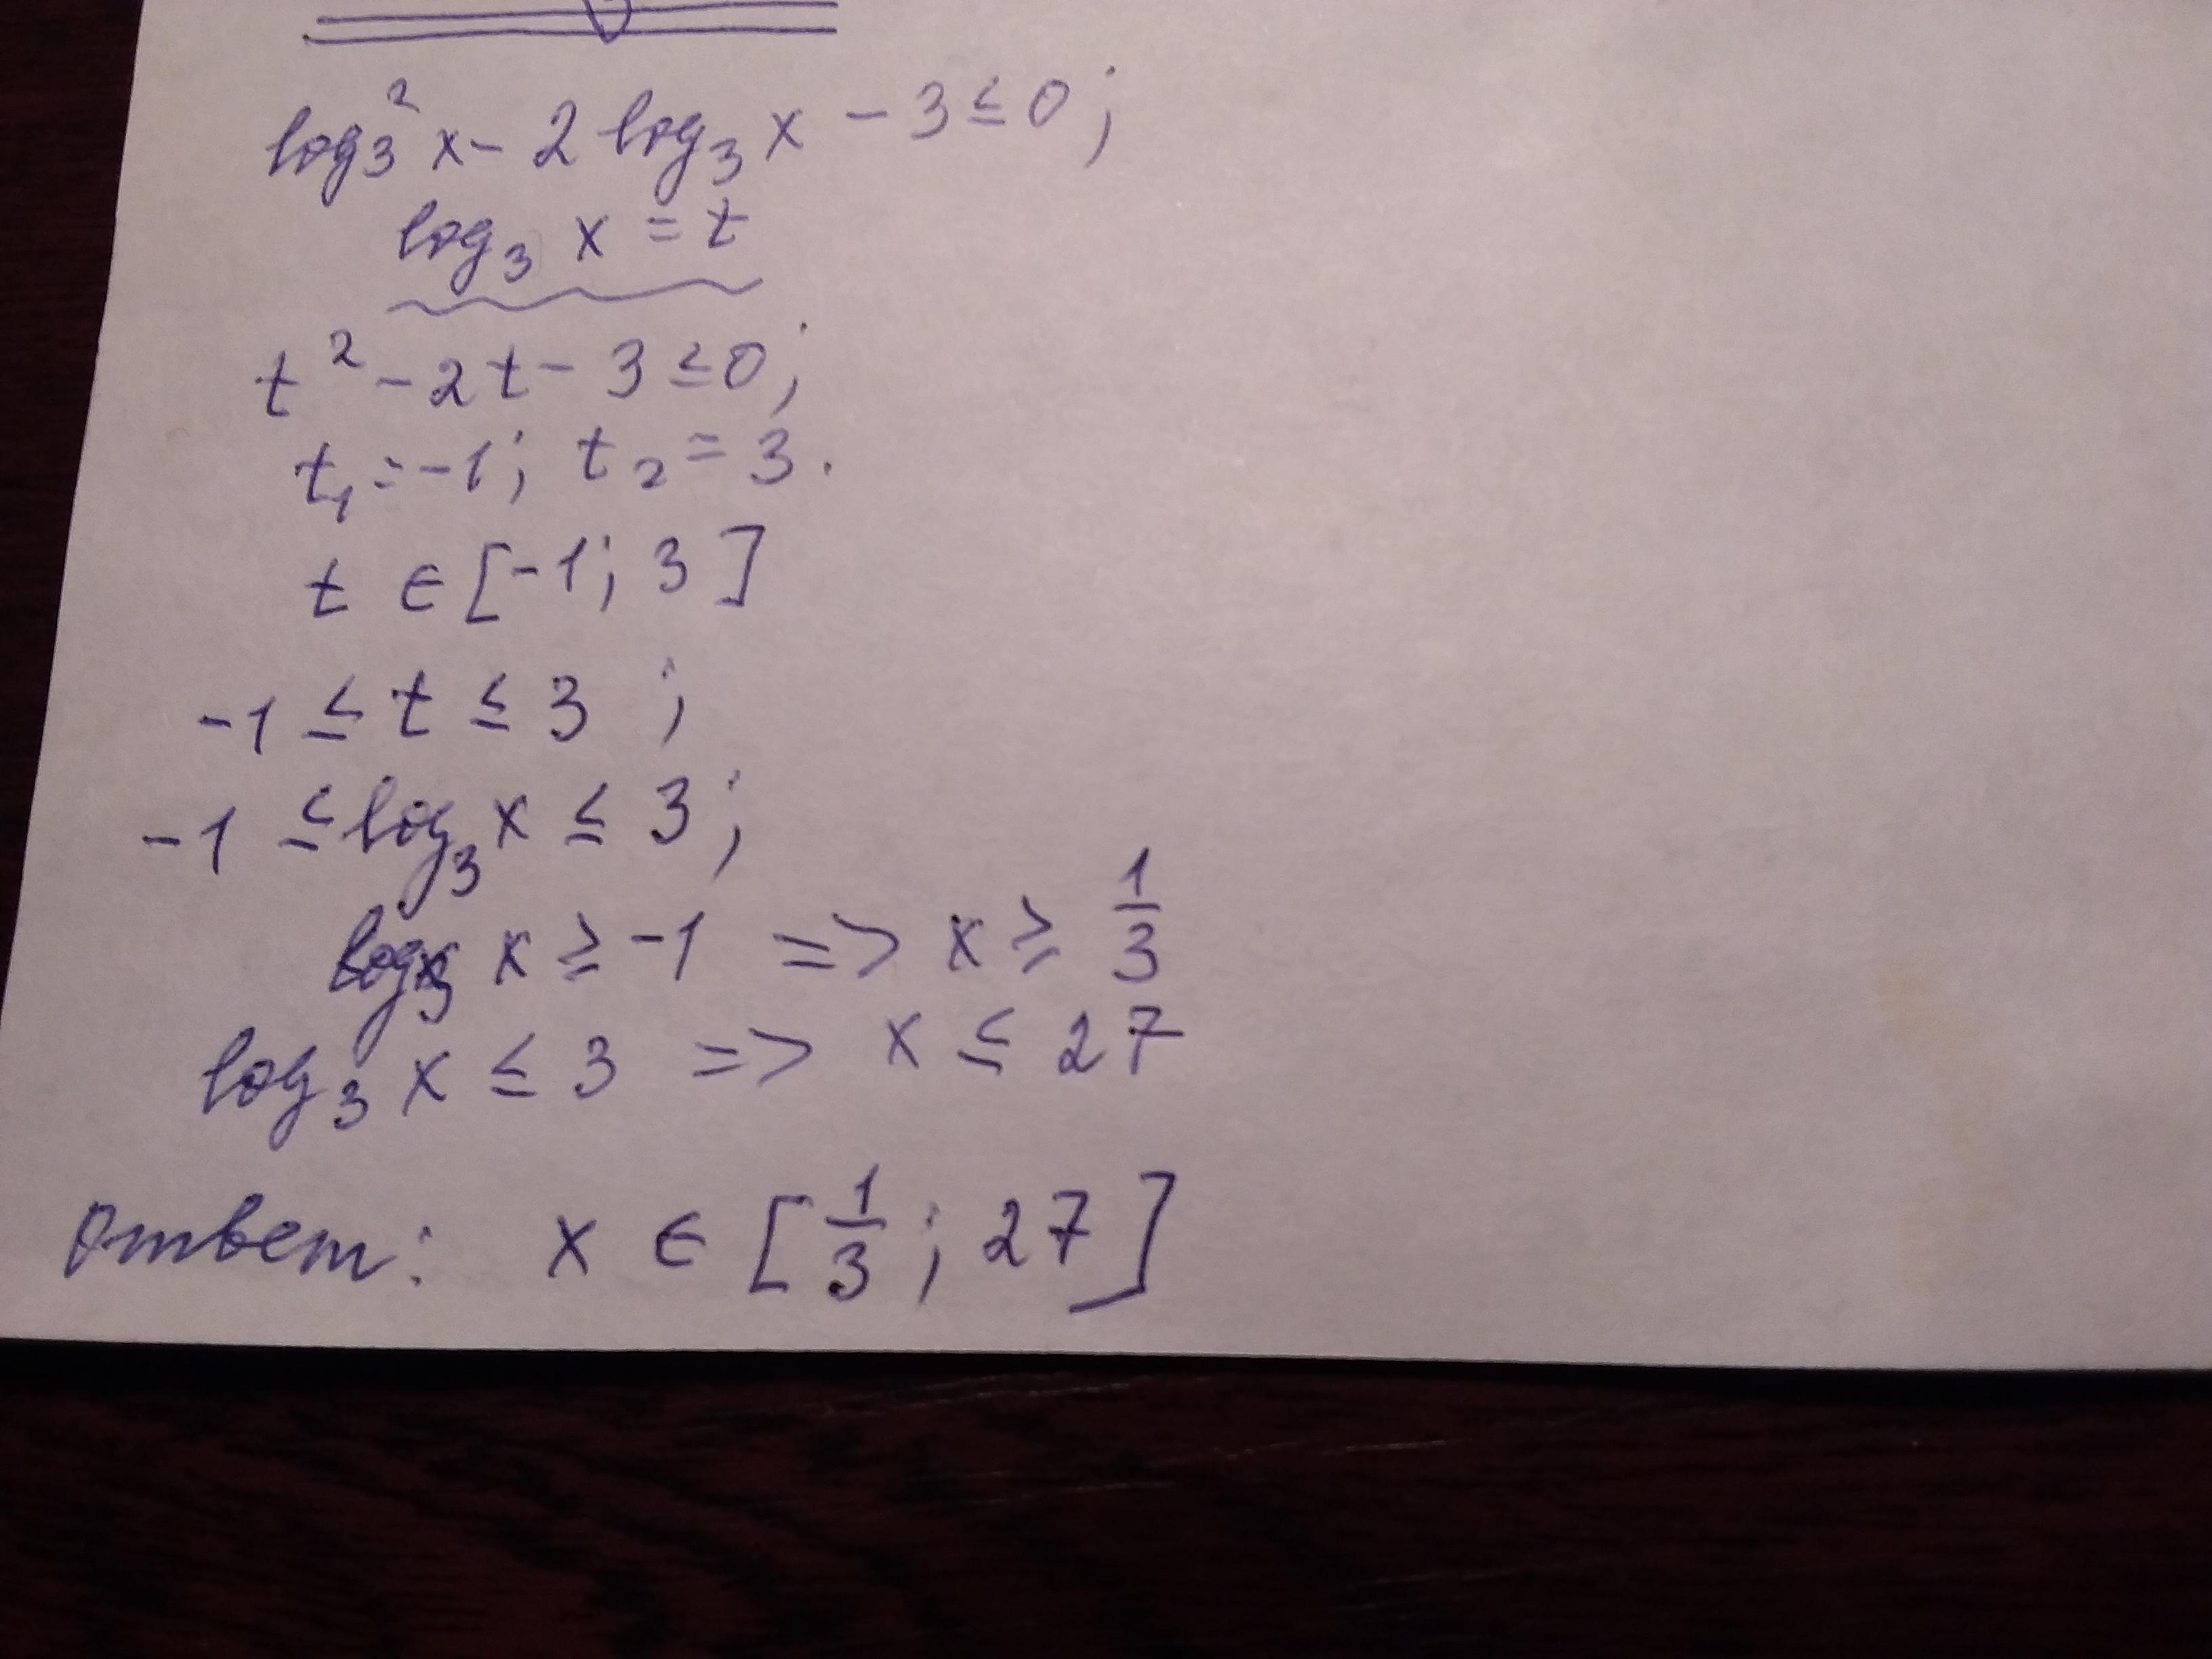 log₃² x - 2 log₃ x - 3 ≤ 0;
log₃ x = t
t² - 2t - 3 ≤ 0;
t₁ = -1; t₂ = 3.
t ∈ [-1; 3]
-1 ≤ t ≤ 3 ;
-1 ≤ log₃ x ≤ 3;
log₃ x ≥ -1 => x ≥ 1/3
log₃ x ≤ 3 => x ≤ 27
Ответ: x ∈ [1/3; 27]